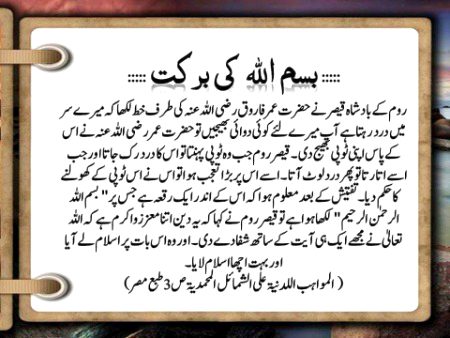 ::::: بسم اللہ کی برکت :::::
روم کے بادشاہ قیصر نے حضرت عمر فاروق رضی اللہ عنہ کی طرف خط لکھا کہ میرے سر
میں درد رہتا ہے آپ میرے لئے کوئی دوائی بھیجیں تو حضرت عمر رضی اللہ عنہ نے اس
کے پاس اپنی ٹوپی بھیج دی۔ قیصر روم جب وہ ٹوپی پہنتا تو اس کا درد رک جاتا اور جب
اسے اتارتا تو پھر درد لوٹ آتا۔ اسے اس پر بڑا تعجب ہوا تو اس نے اس ٹوپی کے کھولنے
کا حکم دیا۔ تفتیش کے بعد معلوم ہوا کہ اس کے اندر ایک رقعہ ہے جس پر " بسم اللہ
الرحمٰن الرحیم " لکھا ہوا ہے تو قیصر روم نے کہا کہ یہ دین اتنا معزز و اکرم ہے کہ اللہ
تعالیٰ نے مجھے ایک ہی آیت کے ساتھ شفا دے دی۔ اور وہ اس بات پر اسلام لے آیا
اور بہت اچھا اسلام لایا۔
( المواہب اللدنیۃ علی الشمائل المحمدیۃ ص 3 طبع مصر)